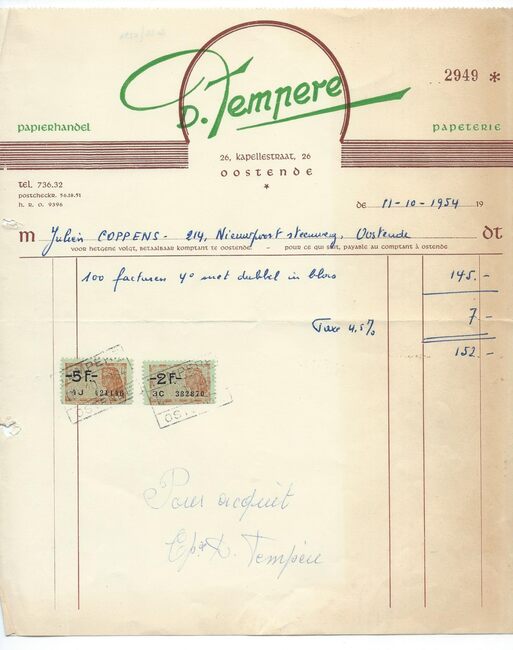 2949 *
D. Tempere
PAPIERHANDEL PAPETERIE
26, KAPELLESTRAAT, 26
OOSTENDE
*
TEL. 736.32
POSTCHECKR. 5628.51
H. R. O. 9396
DE 11-10-1954 19
M Julien COPPENS - 214, Nieuwpoort steenweg, Oostende DT
VOOR HETGENE VOLGT, BETAALBAAR KOMPTANT TE OOSTENDE - POUR CE QUI SUIT, PAYABLE AU COMPTANT À OSTENDE
100 facturen 4° met dubbel in blocs 145.-
Taxe 4,5% 7.-
152.-
-5F.- -2F.-
4J 3C 382820
Pour acquit
D. Tempere